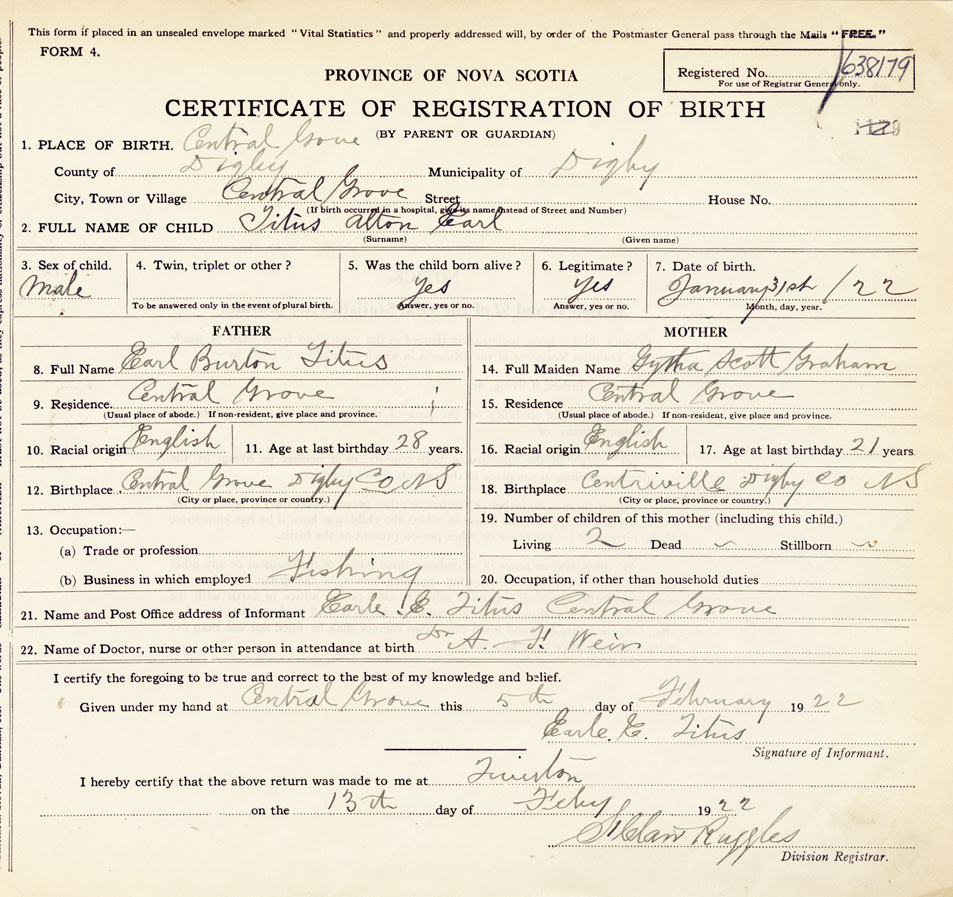 This form if placed in an unsealed envelope marked "Vital Statistics" and properly addressed will, by order of the Postmaster General pass through the Mails "FREE."
FORM 4.
PROVINCE OF NOVA SCOTIA
Registered No. 638179
For use of Registrar General only.
CERTIFICATE OF REGISTRATION OF BIRTH
(BY PARENT OR GUARDIAN)
1. PLACE OF BIRTH. Central Grove
County of Digby Municipality of Digby
City, Town or Village Central Grove Street House No.
(If birth occurred in a hospital, give its name instead of Street and Number)
2. FULL NAME OF CHILD Titus Alton Earl
(Surname) (Given name)
3. Sex of child. 4. Twin, triplet or other? 5. Was the child born alive? 6. Legitimate? 7. Date of birth.
Male Yes Yes January 31st /22
To be answered only in the event of plural birth. Answer, yes or no. Answer, yes or no. Month, day, year.
FATHER MOTHER
8. Full Name Earl Burton Titus 14. Full Maiden Name Gytha Scott Graham
9. Residence. Central Grove 15. Residence Central Grove
(Usual place of abode.) If non-resident, give place and province. (Usual place of abode.) If non-resident, give place and province.
10. Racial origin English 11. Age at last birthday 28 years. 16. Racial origin English 17. Age at last birthday 21 years
12. Birthplace Central Grove Digby Co NS 18. Birthplace Centriville Digby Co NS
(City or place, province or country.) (City or place, province or country.)
13. Occupation:— 19. Number of children of this mother (including this child.)
(a) Trade or profession Living 2 Dead Stillborn
(b) Business in which employed Fishing 20. Occupation, if other than household duties
21. Name and Post Office address of Informant Earle E. Titus Central Grove
22. Name of Doctor, nurse or other person in attendance at birth Dr A. F. Weir
I certify the foregoing to be true and correct to the best of my knowledge and belief.
Given under my hand at Central Grove this 5th day of February 1922
Earle E. Titus
Signature of Informant.
I hereby certify that the above return was made to me at Tiverton
on the 13th day of Feby 1922
Ruggles
Division Registrar.